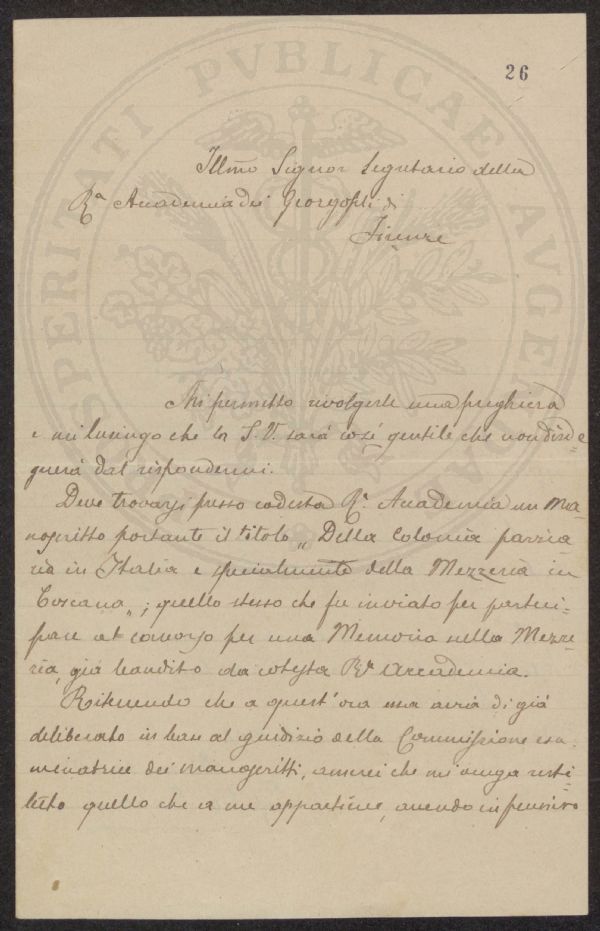 26
Illmo Signor Segretario della
Ra Accademia dei Georgofili di
Firenze
Mi permetto rivolgerle una preghiera
e mi lusingo che la S. V. sarà così gentile che non disde
gnerà dal rispondermi.
Deve trovarsi presso codesta R. Accademia un Ma-
noscritto portante il titolo „ Della Colonia parzia
ria in Italia e specialmente della Mezzeria in
Toscana „; quello stesso che fu inviato per parteci-
pare al concorso per una Memoria sulla Mezze-
ria, già bandito da cotesta Ra Accademia.
Ritenendo che a quest' ora essa avrà di già
deliberato in base al giudizio della Commissione esa-
minatrice dei manoscritti, amerei che mi venga resti-
tuito quello che a me appartiene, avendo in pensiero
PROSPERITATI PVBLICAE AVGENDAE